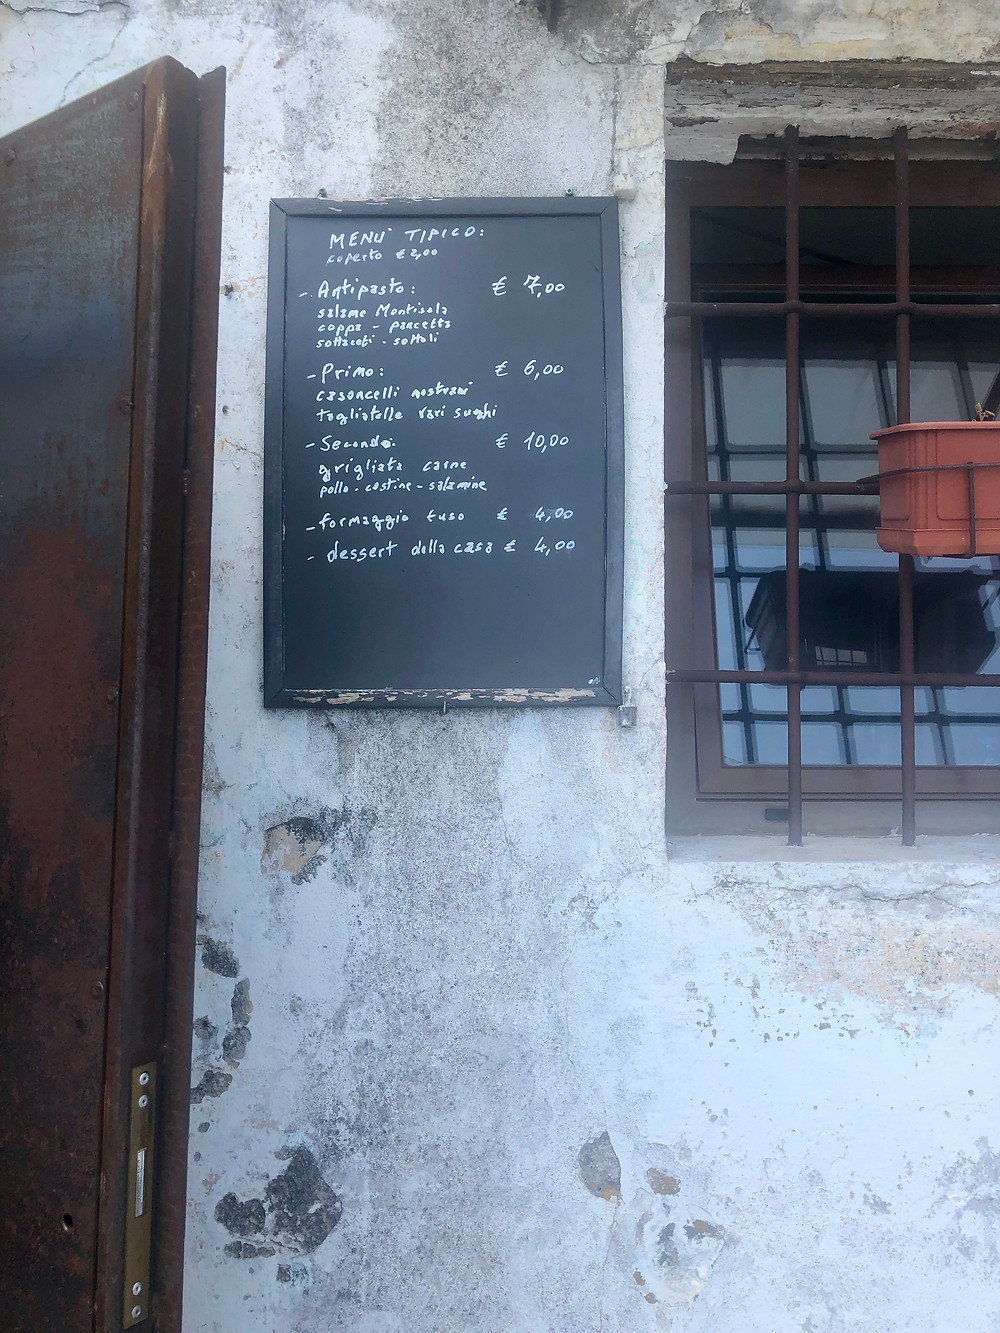 MENU' TIPICO:
coperto € 2,00
- Antipasto: € 7,00
salame Montisola
coppa - pancetta
sottaceti - sottoli
- Primo: € 6,00
casoncelli nostrani
tagliatelle vari sughi
- Secondo: € 10,00
grigliata carne
pollo - costine - salamine
- formaggio fuso € 4,00
- dessert della casa € 4,00